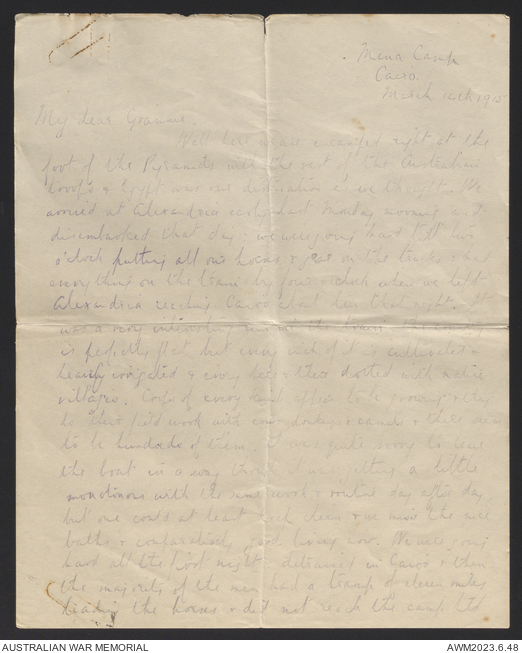 Mena Camp
Cairo.
March 14th 1915
My dear Grannie.
Well here we are encamped right at the
foot of the Pyramids with the rest of the Australian
troops & Egypt was our destination as we thought. We
arrived at Alexandria early last Monday morning and
disembarked that day & were going hard till two
o'clock putting all our horses & gear on the trucks & had
everything on the train by four o'clock when we left
Alexandria reaching Cairo about ten that night. It
was a very interesting in the train.
is perfectly flat but every inch of it is cultivated &
heavily irrigated & every here & there dotted with native
villages. Crops of every kind appear to be growing & they
do their field work with donkeys & camels & there seem
to be hundreds of them. I was quite sorry to leave
the boat in a way though it was getting a little
monotonous with the same work & routine day after day
but one could at least keep clean & we miss the nice
baths & comparatively good living now. We were going
hard all the first night & detrained in Cairo & then
the majority of the men had a tramp of eleven miles
leading the horses & did not reach the camp till
AUSTRALIAN WAR MEMORIAL
AWM2023.6.48